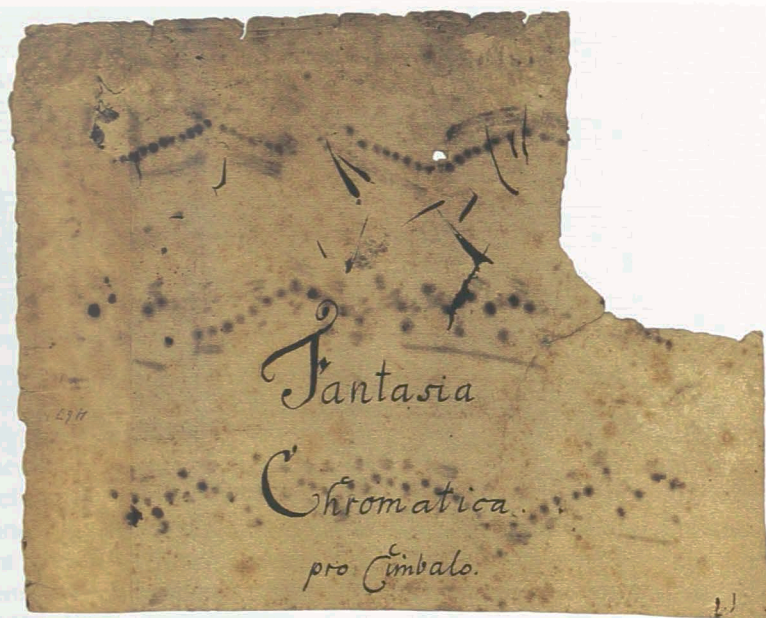 Fantasia
Chromatica.
pro Cimbalo.